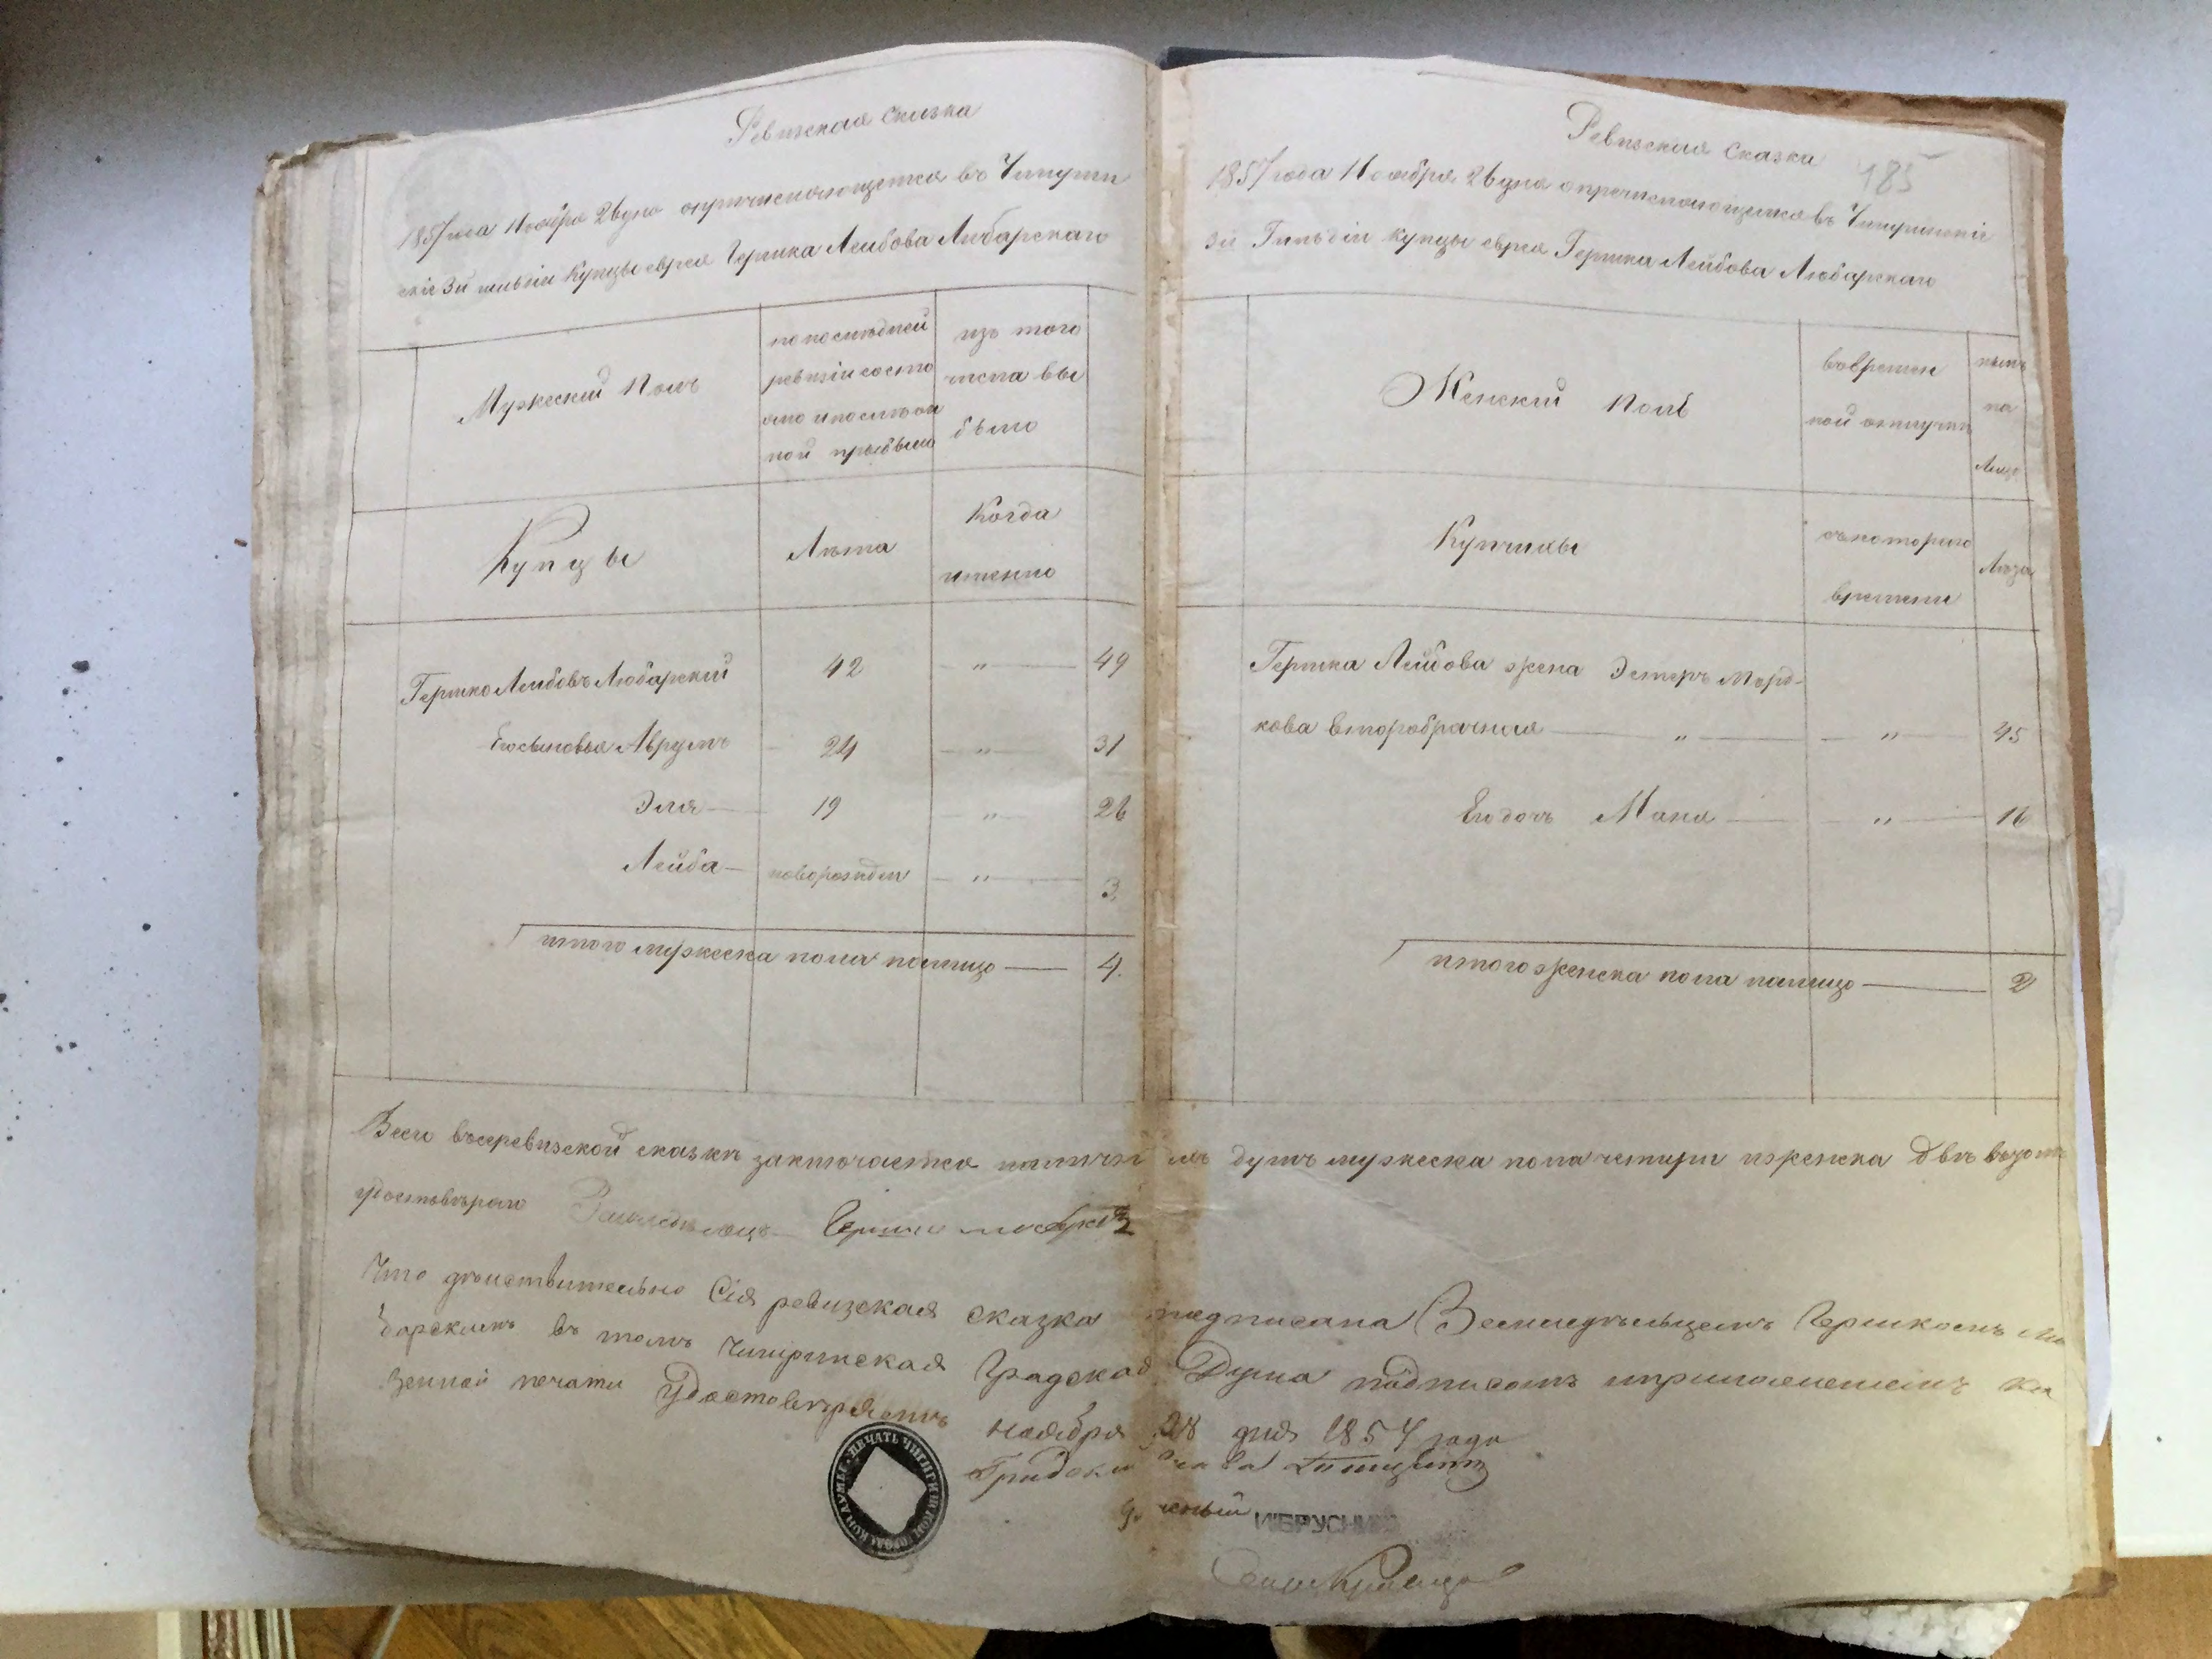 Ревизская Сказка
1857 года Ноября 26 дня опричисляющемся въ Чигирин
скіе 3й гильдіи Купцы еврея Гершка Лейбова Любарскаго
Мужескій Полъ
по послѣдней
ревизіи состо
яло и послѣ он
ной прибыло
изъ того
числа вы
было
Купцы
Лѣта
Когда
именно
Гершко Лейбовъ Любарскій 42 " 49
Его сыновья Аврумъ 24 " 31
Эля 19 " 26
Лейба новорожден " 3
итого мужеска пола налицо 4.
Ревизская Сказка
185
1857 года Ноября 26 дня опричисляющемся въ Чигиринскіе
3й Гильдіи купцы еврея Гершка Лейбова Любарскаго
Женскій Полъ
во времен
ной отлучкѣ
нынѣ
на
лицо
Купчихы
съ котораго
времени
Лѣта
Гершка Лейбова жена Эстеръ Морд-
кова второбрачная " " 45
Его дочь Маня " 16
итого женска пола налицо 2
Всего въ сей ревизской сказкѣ заключается наличныхъ душъ мужеска пола четыри и женска двѣ въ чомъ
удостовѣряю Земледѣлецъ Гершко
Что дѣйствительно Сія ревизская сказка подписана Земледѣльцемъ Гершкомъ Лю
барскимъ въ томъ Чигиринская Градская Дума подписомъ и приложеніемъ ка
зенной печати удостовѣряетъ Ноября 28 дня 1857 года
Градской Глава
ПЕЧАТЬ ЧИГИРИНСКОЙ ГОРОДСКОЙ ДУМЫ
И. БРУСНИ